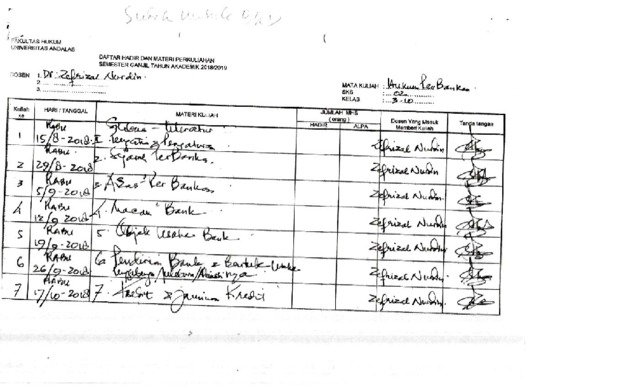 FAKULTAS HUKUM
UNIVERSITAS ANDALAS
DAFTAR HADIR DAN MATERI PERKULIAHAN
SEMESTER GANJIL TAHUN AKADEMIK 2018/2019
DOSEN 1. Dr. Zefrizal Nurdin.
2.
3.
MATA KULIAH : Hukum Per Bankan
SKS : 02
KELAS : 3-10
Kuliah ke HARI / TANGGAL MATERI KULIAH JUMLAH MHS (orang) HADIR ALPA Dosen Yang Masuk Memberi Kuliah Tanda tangan
1 RABU 15/8-2018 Silabus - Literatur Zefrizal Nurdin
2 RABU 29/8-2018 2. Sejarah Per Bankan Zefrizal Nurdin
3 RABU 5/9-2018 Asas² Per Bankan Zefrizal Nurdin
4 RABU 12/9-2018 4. Macam² Bank Zefrizal Nurdin
5 RABU 19/9-2018 5. Usaha Bank Zefrizal Nurdin
6 RABU 26/9-2018 6 Pendirian Bank Zefrizal Nurdin
7 RABU 17/10-2018 7. Kredit & Jaminan Kredit Zefrizal Nurdin